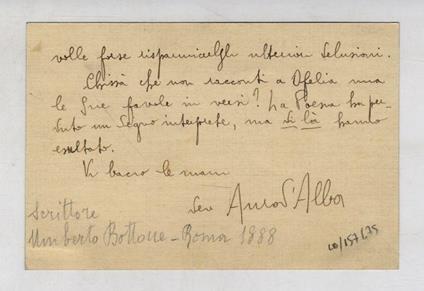 volle forse risparmiargli ulteriori delusioni.
Chissà che non racconti a Ofelia una
le sue favole in versi? La Poesia ha per-
duto un degno interprete, ma di là hanno
esultato.
Vi bacio le mani
dev Auro d'Alba
Scrittore
Umberto Bottone - Roma 1888